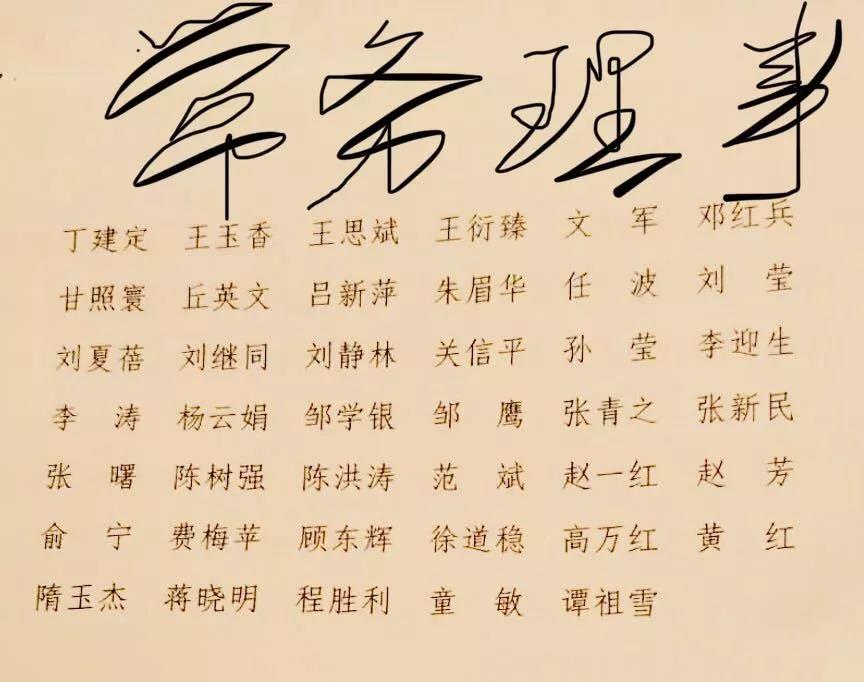 常务理事
丁建定 王玉香 王思斌 王衍臻 文 军 邓红兵
甘照寰 丘英文 吕新萍 朱眉华 任 波 刘 莹
刘夏蓓 刘继同 刘静林 关信平 孙 莹 李迎生
李 涛 杨云娟 邹学银 邹 鹰 张青之 张新民
张 曙 陈树强 陈洪涛 范 斌 赵一红 赵 芳
俞 宁 费梅苹 顾东辉 徐道稳 高万红 黄 红
隋玉杰 蒋晓明 程胜利 童 敏 谭祖雪